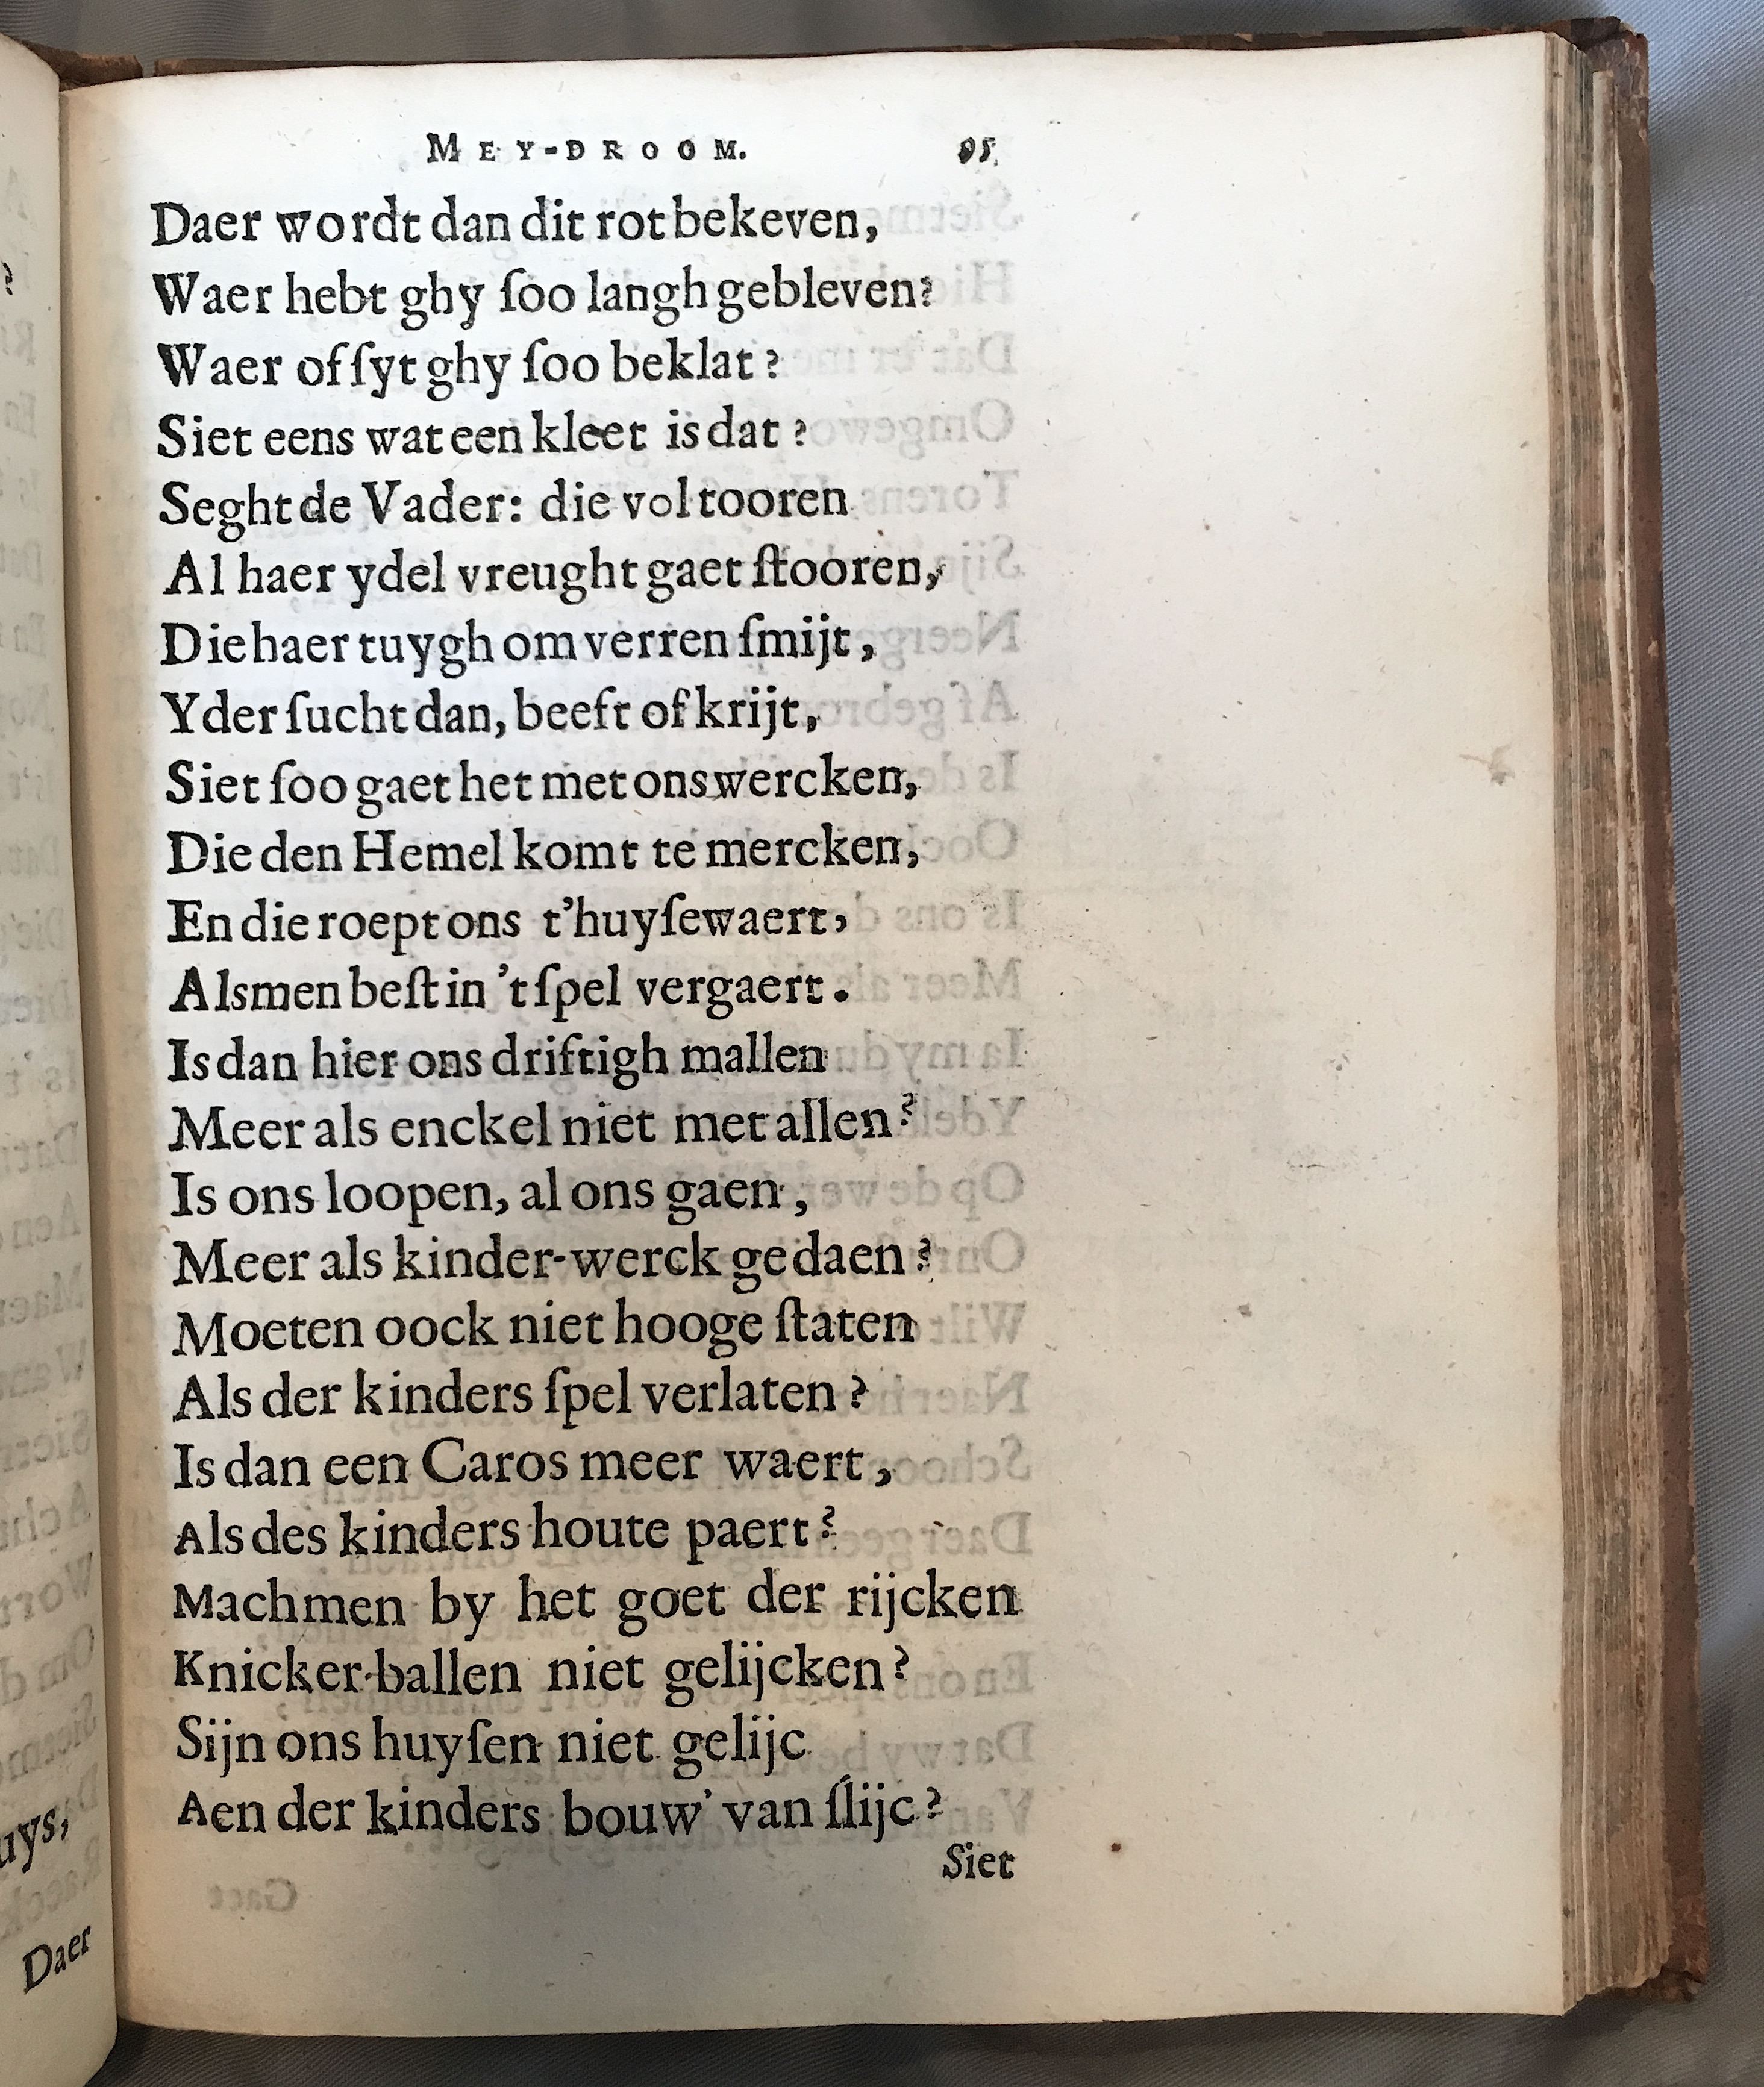 MEY-DROOM. 95
Daer wordt dan dit rot bekeven,
Waer hebt ghy ſoo langh gebleven?
Waer of ſyt ghy ſoo beklat?
Siet eens wat een kleet is dat?
Seght de Vader: die vol tooren
Al haer ydel vreught gaet ſtooren,
Die haer tuygh om verren ſmijt,
Yder ſucht dan, beeft of krijt,
Siet ſoo gaet het met ons wercken,
Die den Hemel komt te mercken,
En die roept ons t'huyſewaert,
Alsmen beſt in 't ſpel vergaert.
Is dan hier ons driftigh mallen
Meer als enckel niet met allen?
Is ons loopen, al ons gaen,
Meer als kinder-werck gedaen?
Moeten oock niet hooge ſtaten
Als der kinders ſpel verlaten?
Is dan een Caros meer waert,
Als des kinders houte paert?
Machmen by het goet der rijcken
Knicker-ballen niet gelijcken?
Sijn ons huyſen niet gelijc
Aen der kinders bouw' van ſlijc?
Siet
uys,
Daer